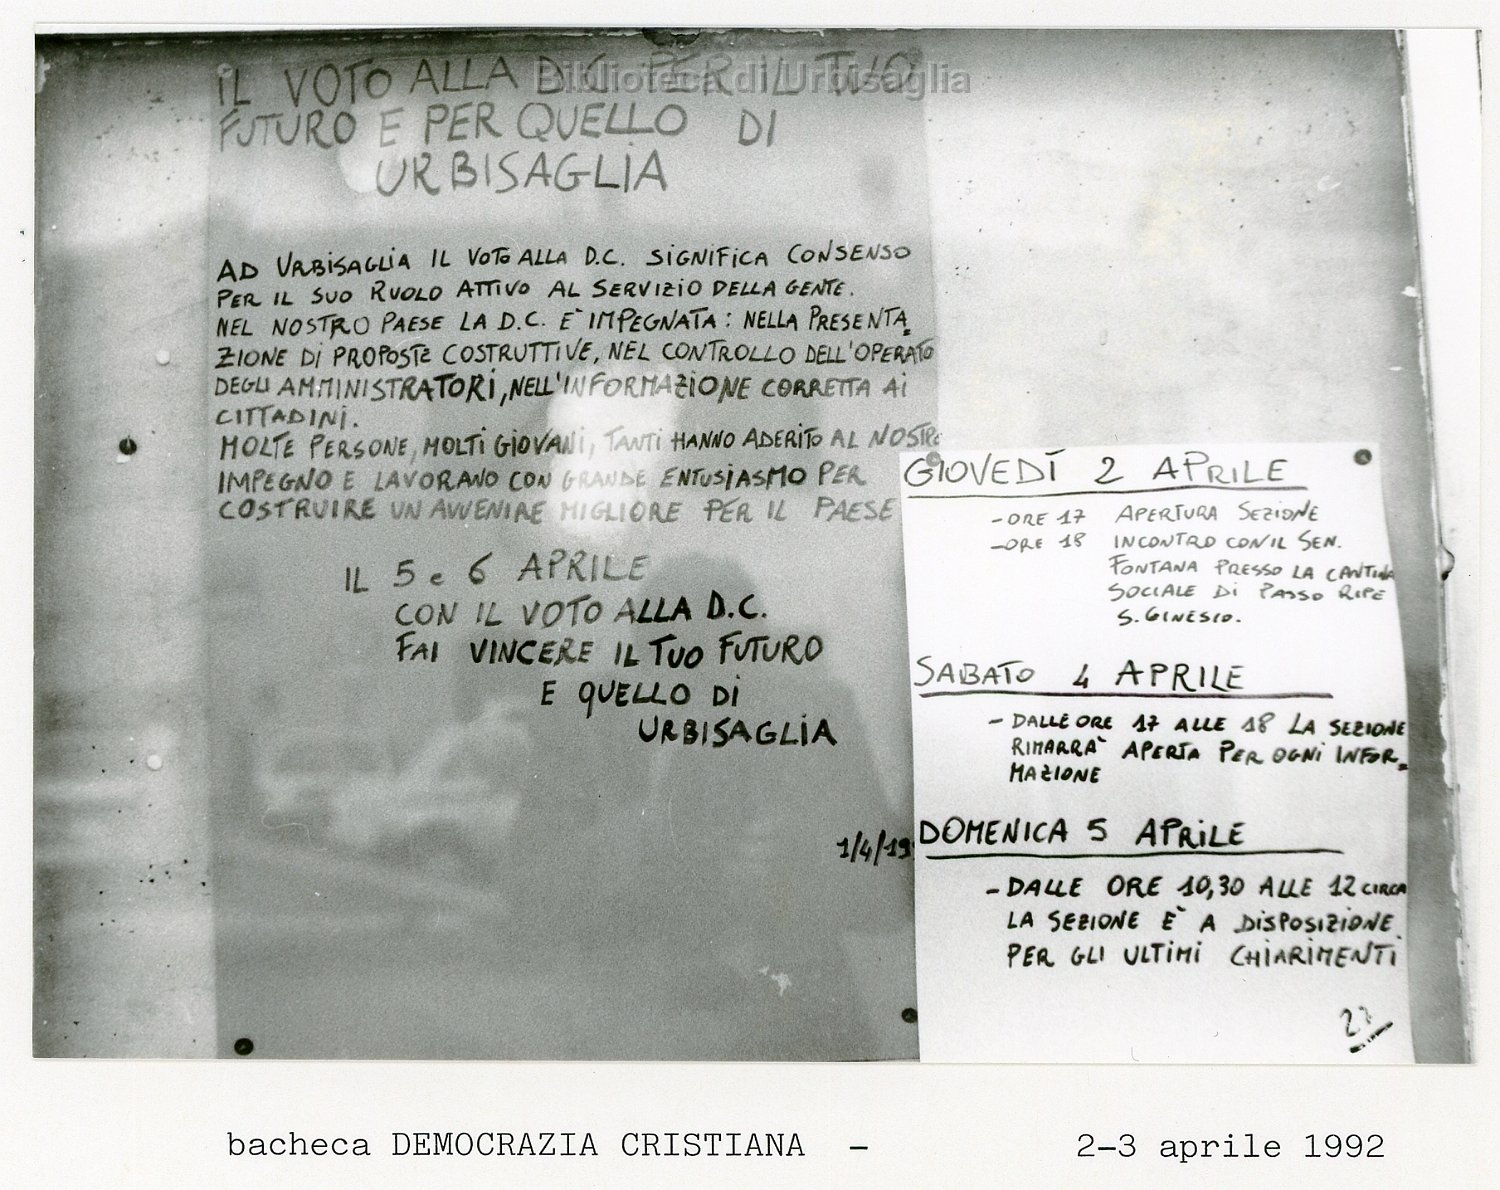 Biblioteca di Urbisaglia
IL VOTO ALLA D.C. PER IL TUO
FUTURO E PER QUELLO DI
URBISAGLIA
AD URBISAGLIA IL VOTO ALLA D.C. SIGNIFICA CONSENSO
PER IL SUO RUOLO ATTIVO AL SERVIZIO DELLA GENTE.
NEL NOSTRO PAESE LA D.C. E' IMPEGNATA: NELLA PRESENTA=
ZIONE DI PROPOSTE COSTRUTTIVE, NEL CONTROLLO DELL'OPERATO
DEGLI AMMINISTRATORI, NELL'INFORMAZIONE CORRETTA AI
CITTADINI.
MOLTE PERSONE, MOLTI GIOVANI, TANTI HANNO ADERITO AL NOSTRO
IMPEGNO E LAVORANO CON GRANDE ENTUSIASMO PER
COSTRUIRE UN AVVENIRE MIGLIORE PER IL PAESE
IL 5 e 6 APRILE
CON IL VOTO ALLA D.C.
FAI VINCERE IL TUO FUTURO
E QUELLO DI
URBISAGLIA
1/4/19
GIOVEDÌ 2 APRILE
- ORE 17 APERTURA SEZIONE
- ORE 18 INCONTRO CON IL SEN.
FONTANA PRESSO LA CANTINA
SOCIALE DI PASSO RIPE
S. GINESIO.
SABATO 4 APRILE
- DALLE ORE 17 ALLE 18 LA SEZIONE
RIMARRA' APERTA PER OGNI INFOR=
MAZIONE
DOMENICA 5 APRILE
- DALLE ORE 10,30 ALLE 12 CIRCA
LA SEZIONE E' A DISPOSIZIONE
PER GLI ULTIMI CHIARIMENTI
27
bacheca DEMOCRAZIA CRISTIANA - 2-3 aprile 1992